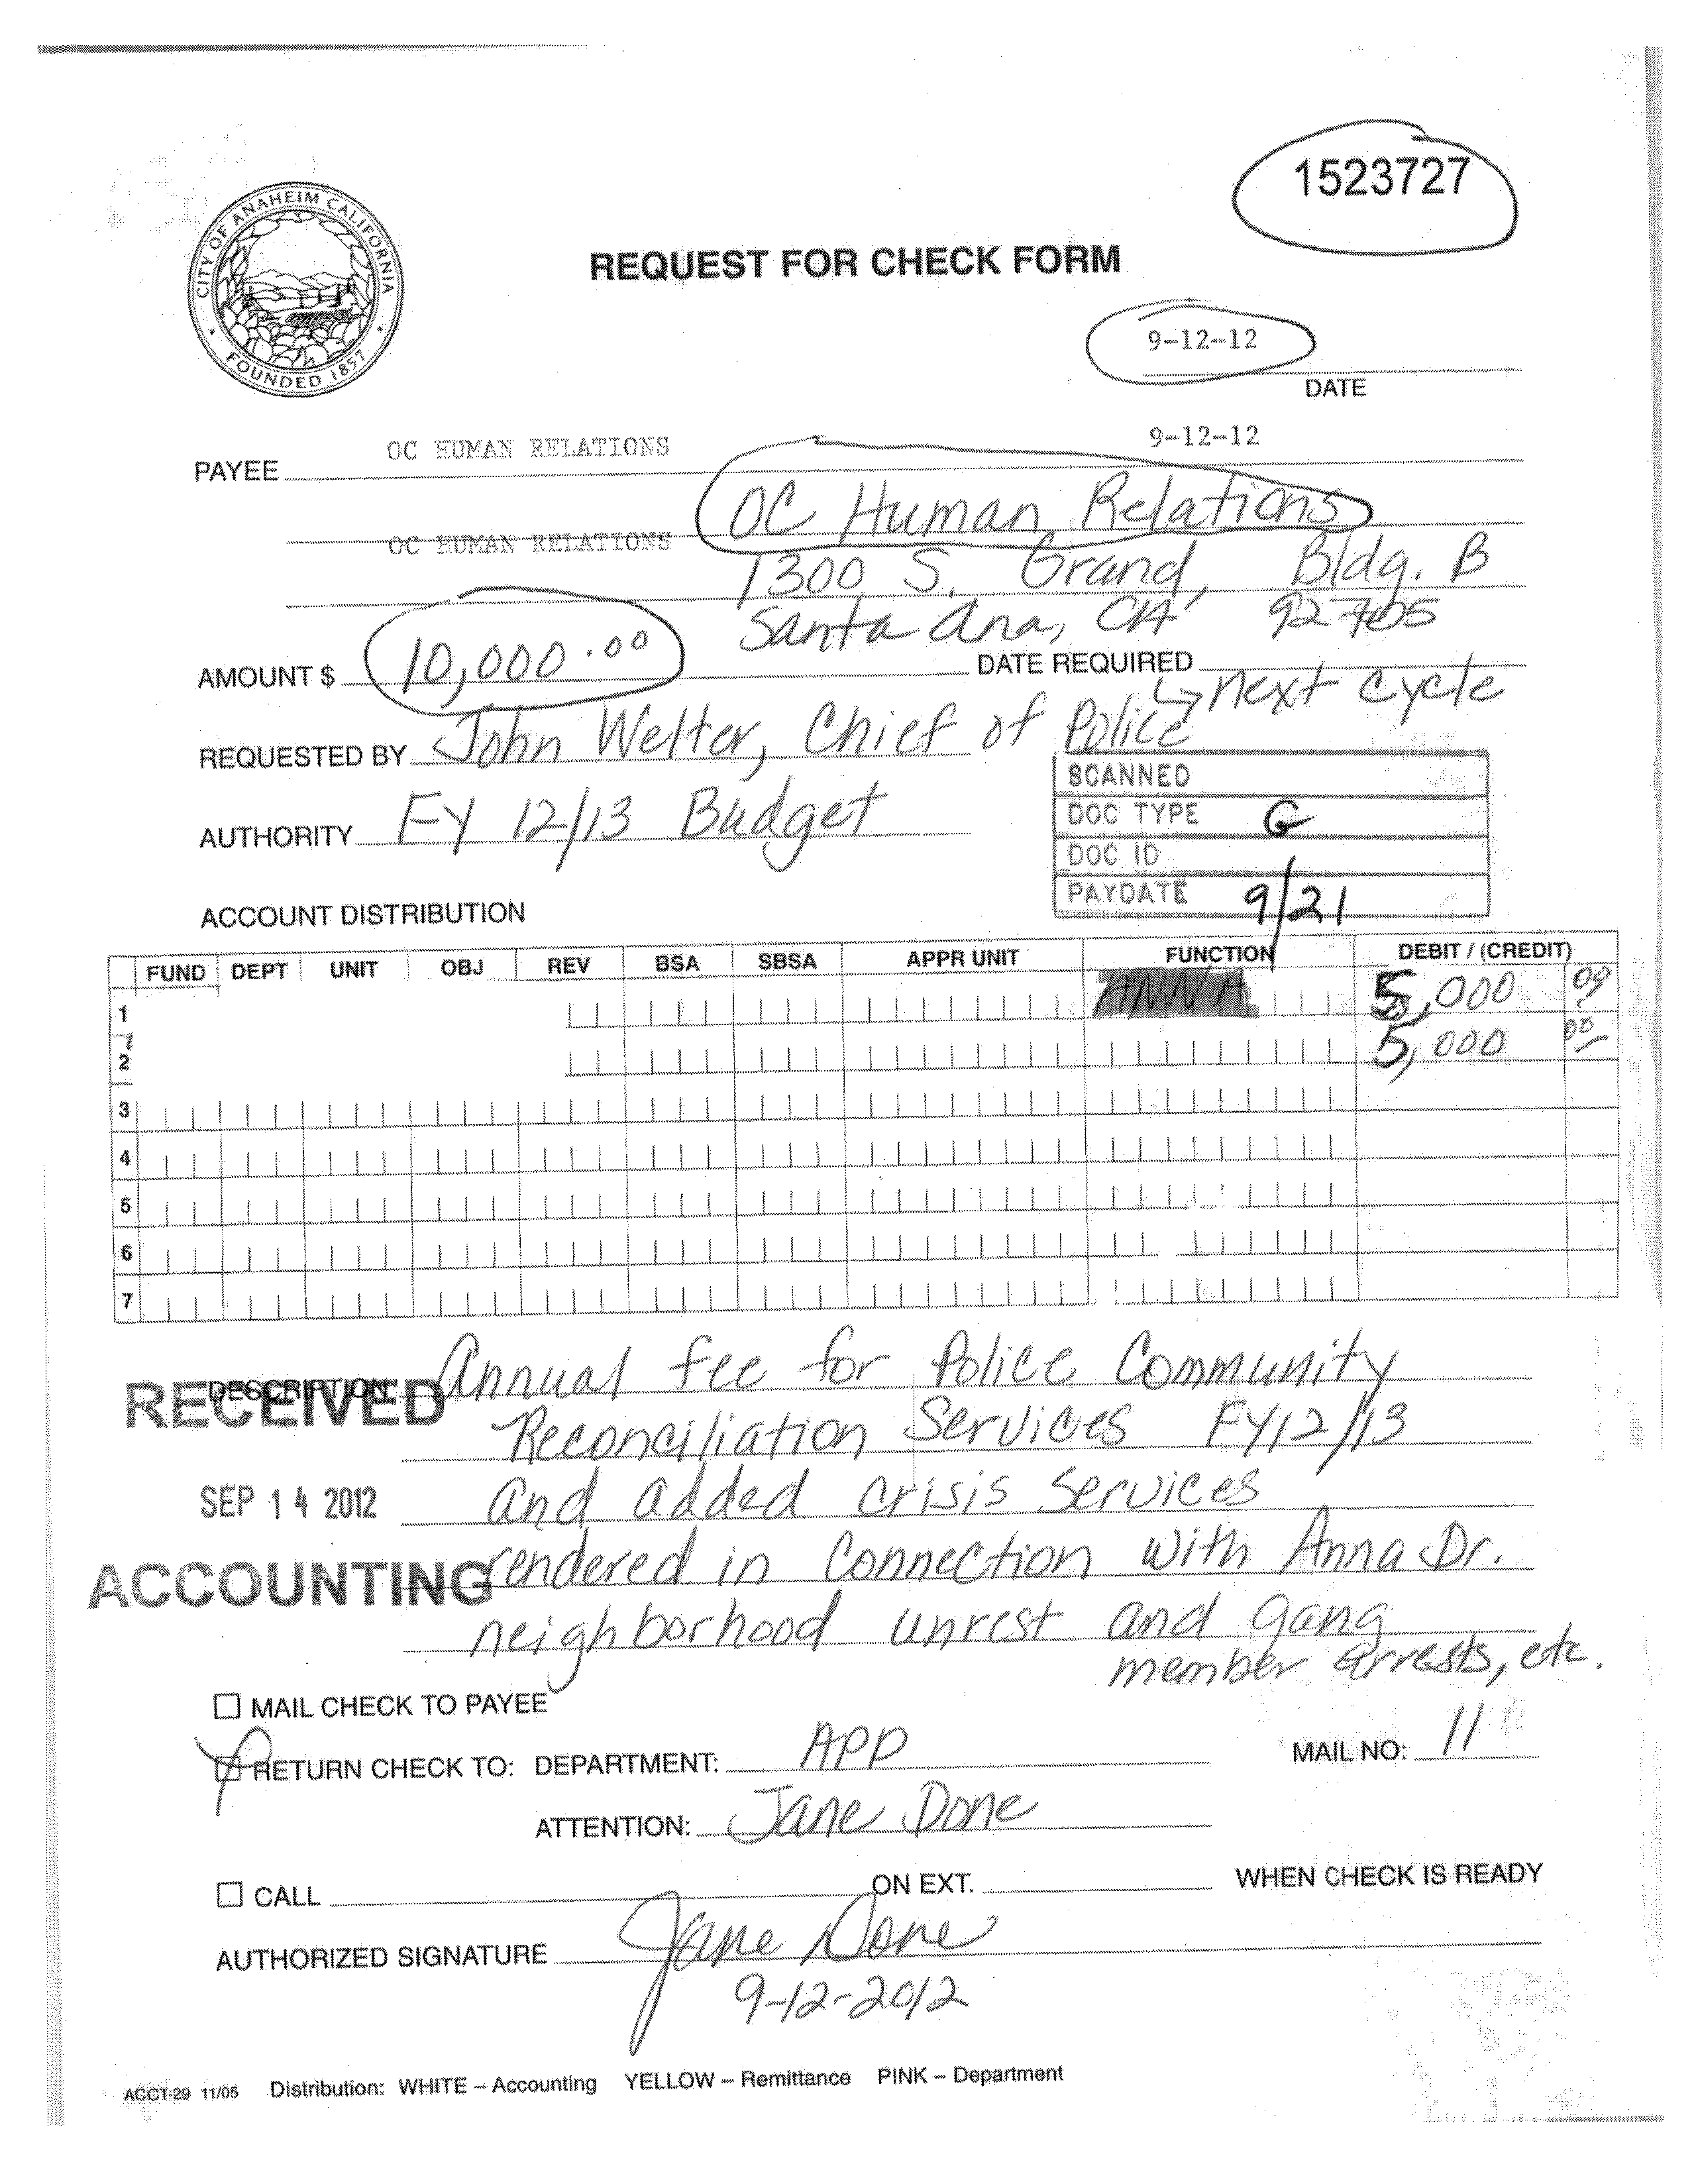 1523727
CITY OF ANAHEIM CALIFORNIA
FOUNDED 1857
REQUEST FOR CHECK FORM
9-12-12
DATE
9-12-12
PAYEE OC HUMAN RELATIONS
OC Human Relations
OC HUMAN RELATIONS
1300 S. Grand, Bldg. B
Santa Ana, CA 92705
AMOUNT $ 10,000.00 DATE REQUIRED
next cycle
REQUESTED BY John Welter, Chief of Police
SCANNED
DOC TYPE G
AUTHORITY FY 12/13 Budget
DOC ID
PAYDATE 9/21
ACCOUNT DISTRIBUTION
FUND DEPT UNIT OBJ REV BSA SBSA APPR UNIT FUNCTION DEBIT / (CREDIT)
1 ANNA 5,000 00
2 5,000 00
3
4
5
6
7
DESCRIPTION Annual fee for Police Community
RECEIVED
Reconciliation Services FY12/13
SEP 14 2012 and added crisis services
ACCOUNTING rendered in connection with Anna Dr.
neighborhood unrest and gang
member arrests, etc.
MAIL CHECK TO PAYEE
RETURN CHECK TO: DEPARTMENT: APD MAIL NO: 11
ATTENTION: Jane Done
CALL ON EXT. WHEN CHECK IS READY
AUTHORIZED SIGNATURE Jane Done
9-12-2012
ACCT-29 11/05 Distribution: WHITE – Accounting YELLOW – Remittance PINK – Department